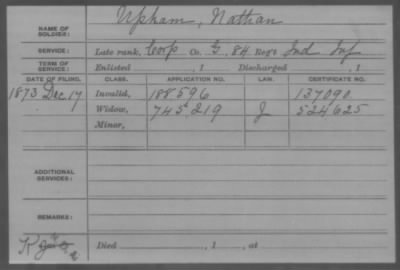 NAME OF SOLDIER: Upham, Nathan
SERVICE: Late rank, Corp Co. G, 84 Reg't Ind Inf
TERM OF SERVICE: Enlisted , 1 Discharged , 1
DATE OF FILING. CLASS. APPLICATION NO. LAW. CERTIFICATE NO.
1873 Dec. 17 Invalid, 188596 137090
Widow, 745,219 J 524625
Minor,
ADDITIONAL SERVICES:
REMARKS:
Died , 1 , at